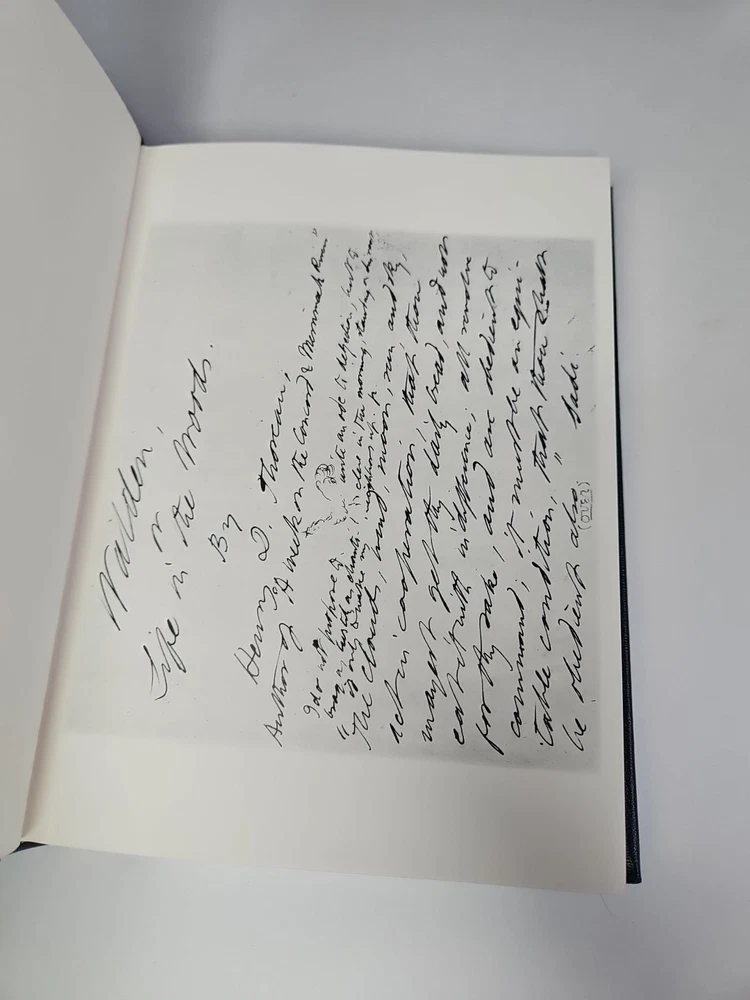 Walden,
or
Life in the Woods.
By
Henry D. Thoreau,
Author of "A Week on the Concord & Merrimack Rivers"
I do not propose to write an ode to dejection, but to
brag as lustily as chanticleer in the morning, standing on his roost
if only to wake my neighbors up.
"The clouds, wind, moon, sun and sky,
act in cooperation, that thou
mayest get thy daily bread, and not
eat it with indifference; all revolve
for thy sake, and are obedient to
command; it must be an equi-
table condition, that thou shalt
be obedient also," Sadi.
(OVER)